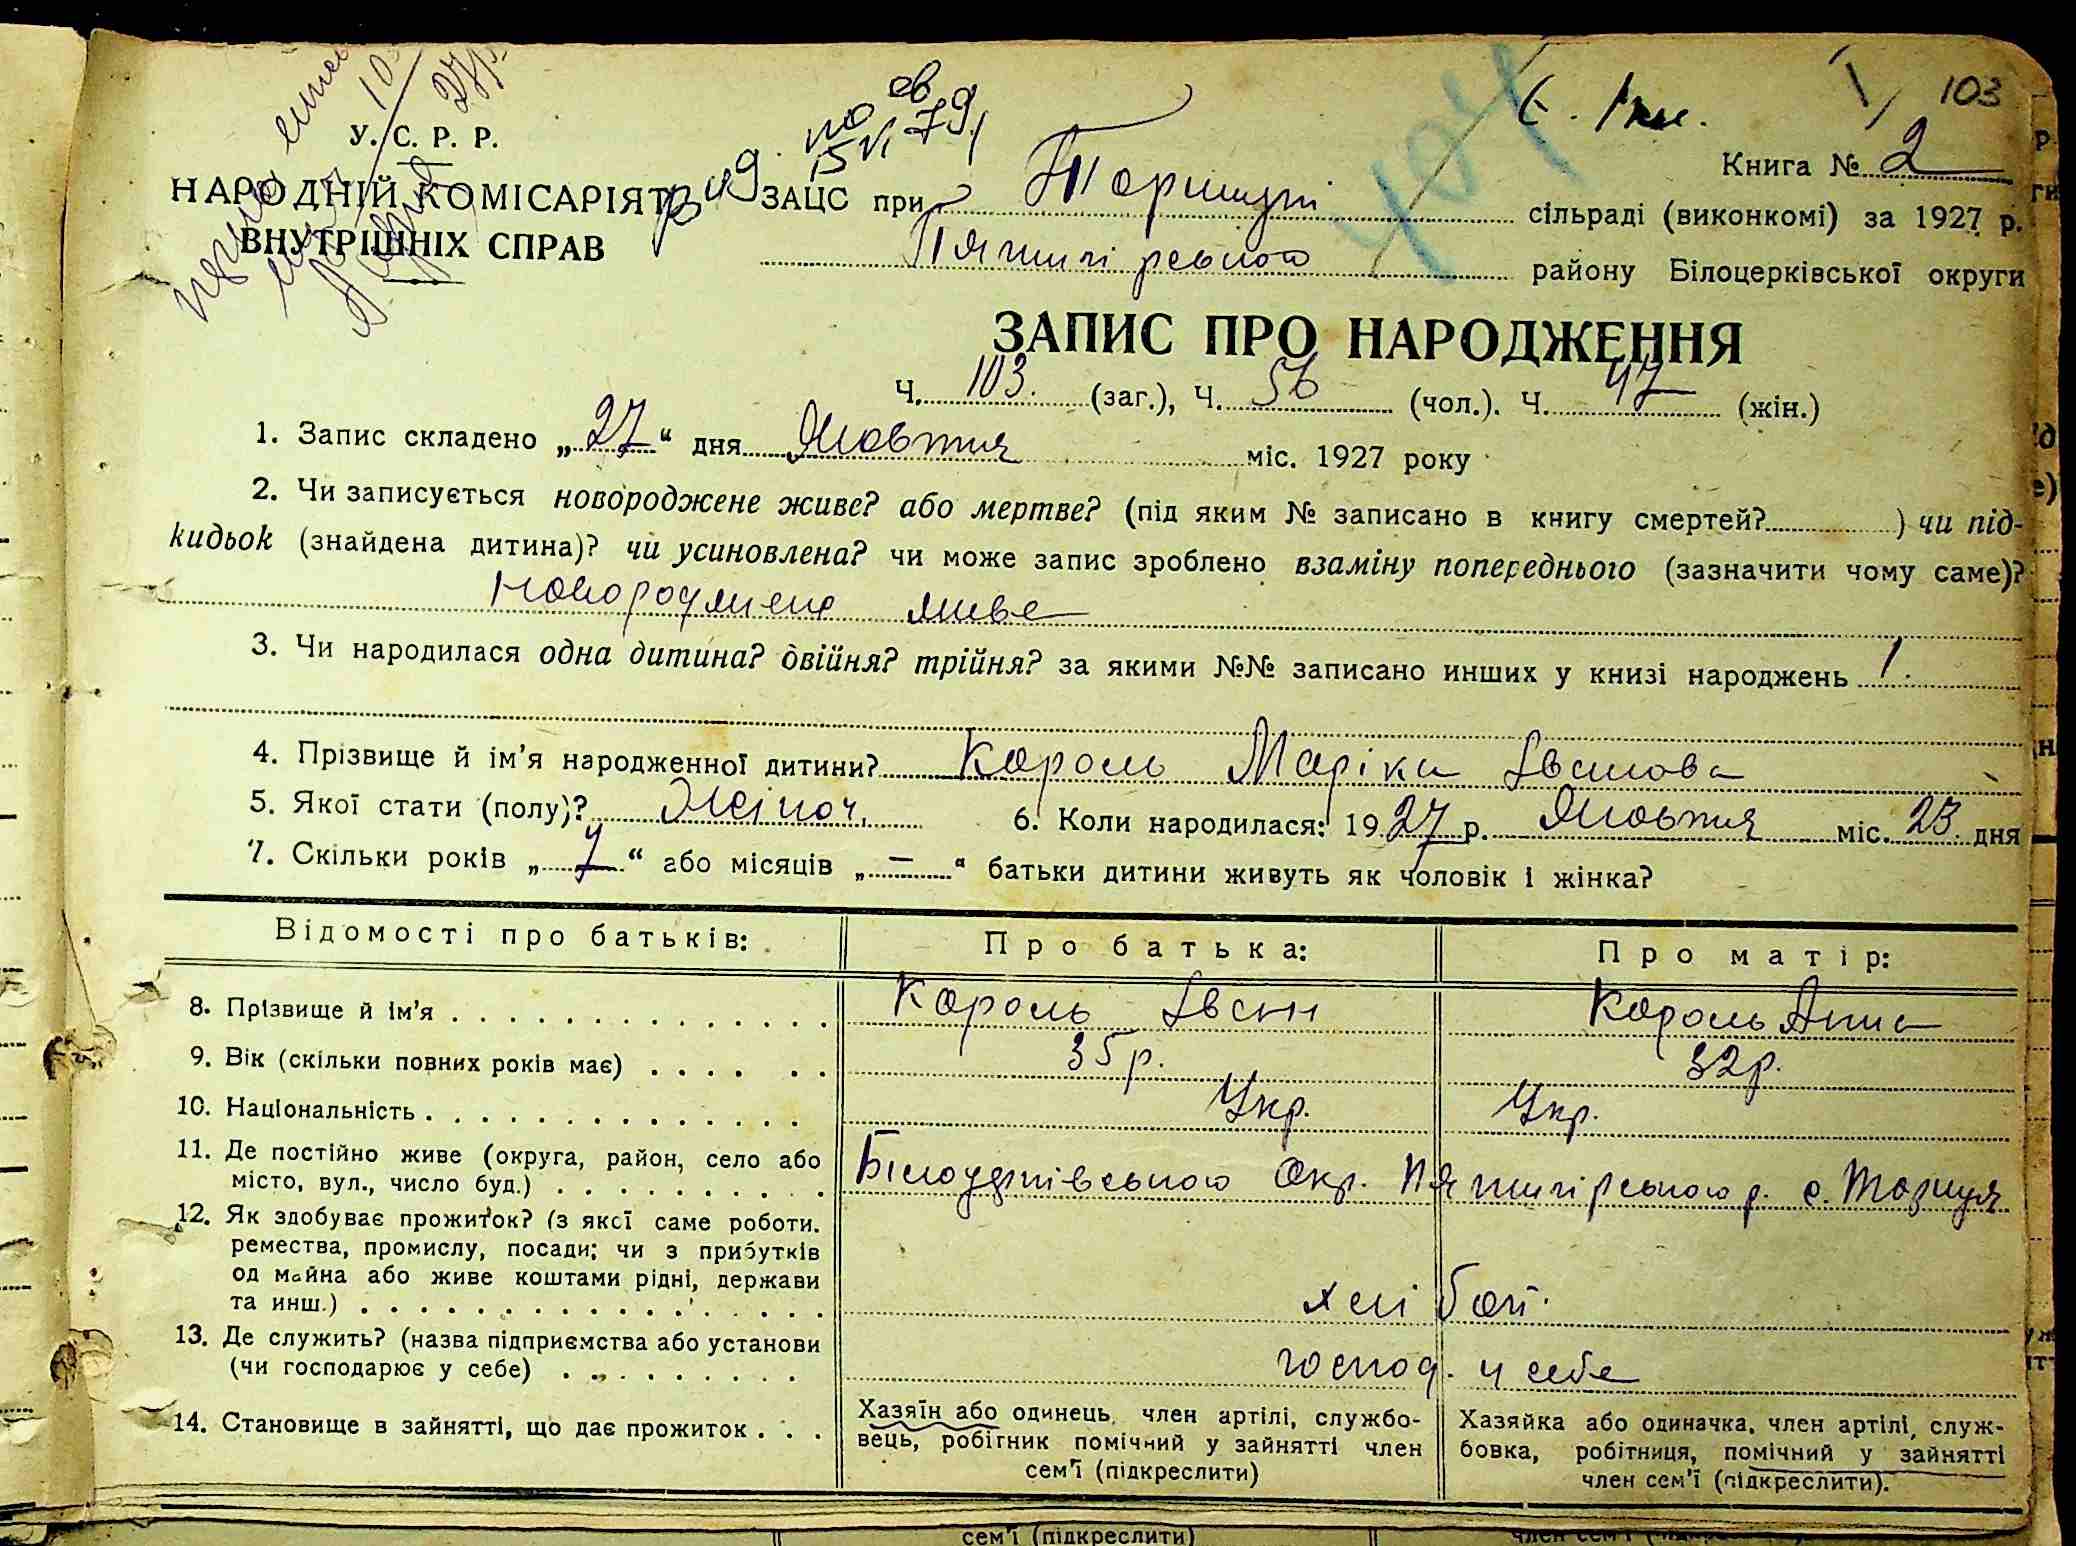 103
У. С. Р. Р.
Книга № 2
НАРОДНІЙ КОМІСАРІЯТ
ВНУТРІШНІХ СПРАВ
ЗАЦС при сільраді (виконкомі) за 1927 р.
Пятигірського району Білоцерківської округи
ЗАПИС ПРО НАРОДЖЕННЯ
Ч. 103. (заг.), Ч. 56 (чол.). Ч. 47 (жін.)
1. Запис складено „27“ дня Жовтня міс. 1927 року
2. Чи записується новороджене живе? або мертве? (під яким № записано в книгу смертей? ) чи під-
кидьок (знайдена дитина)? чи усиновлена? чи може запис зроблено взаміну попереднього (зазначити чому саме)?
Новороджене живе
3. Чи народилася одна дитина? двійня? трійня? за якими №№ записано инших у книзі народжень 1.
4. Прізвище й ім'я народженної дитини? Король Маріка Івановa
5. Якої стати (полу)? Жіноч. 6. Коли народилася: 1927 р. Жовтня міс. 23. дня
7. Скільки років „7“ або місяців „—“ батьки дитини живуть як чоловік і жінка?
Відомості про батьків: Про батька: Про матір:
8. Прізвище й ім'я Король Іван Король Анна
9. Вік (скільки повних років має) 35 р. 32 р.
10. Національність Укр. Укр.
11. Де постійно живе (округа, район, село або
місто, вул., число буд.) Окр. Пятигірського р. с.
12. Як здобуває прожиток? (з якої саме роботи.
ремества, промислу, посади; чи з прибутків
од майна або живе коштами рідні, держави
та инш.) хлібоп.
13. Де служить? (назва підприємства або установи
(чи господарює у себе) господ. у себе
14. Становище в зайнятті, що дає прожиток
Хазяїн або одинець, член артілі, службо-
вець, робітник помічний у зайнятті член
сем'ї (підкреслити)
Хазяйка або одиначка, член артілі, служ-
бовка, робітниця, помічний у зайнятті
член сем'ї (підкреслити).
сем'ї (підкреслити)